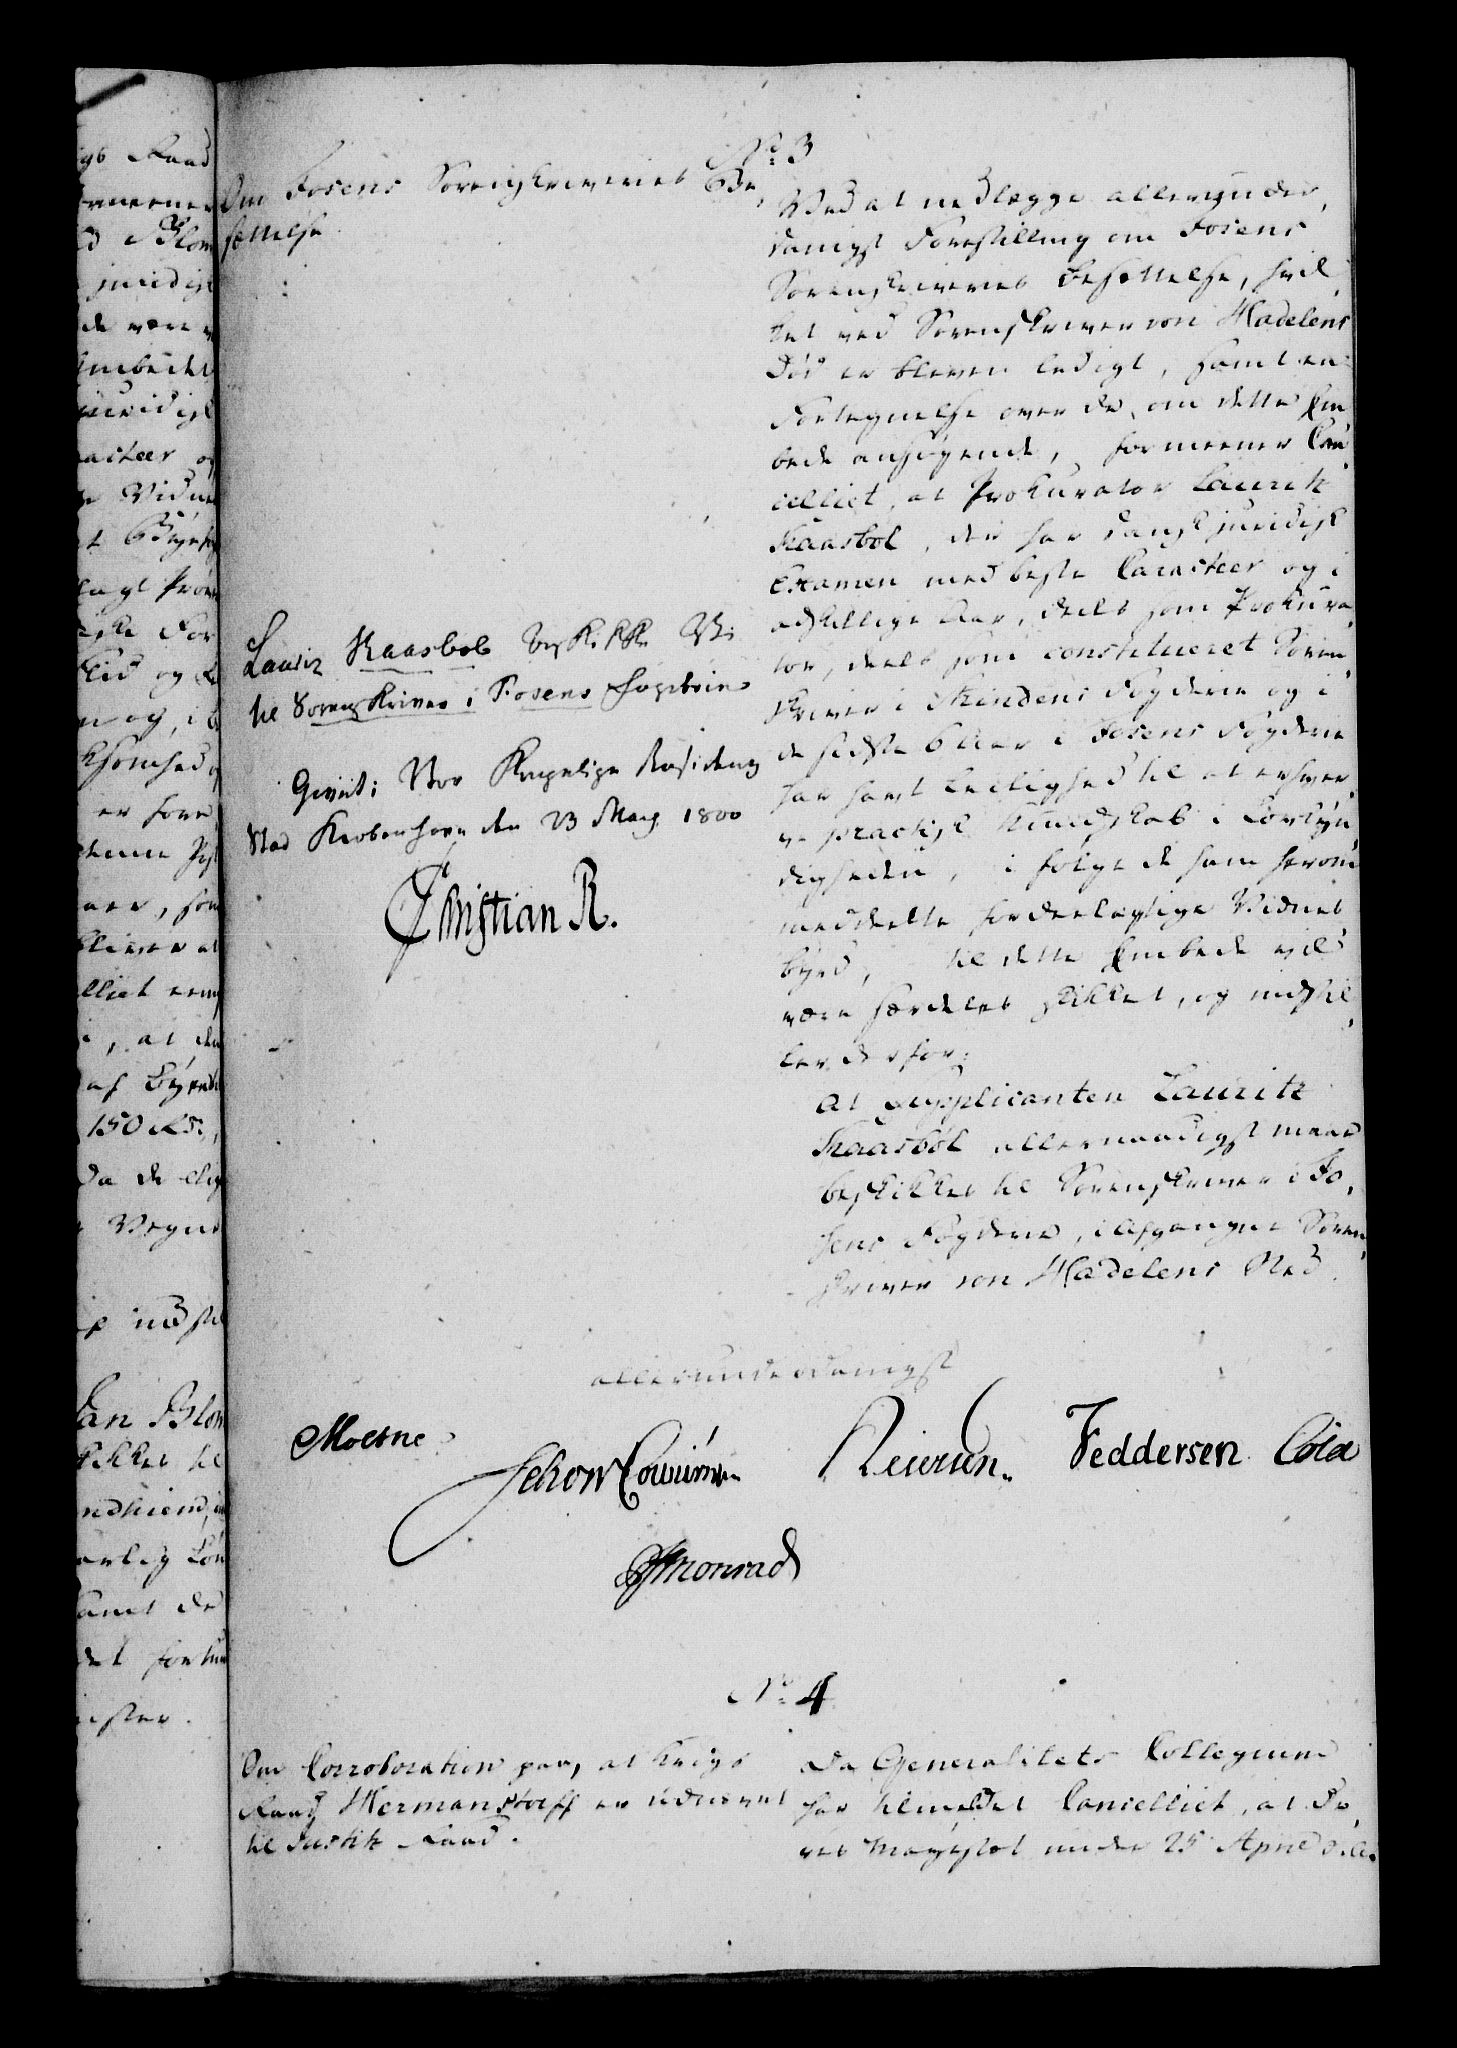 No 3
Om Fosens Sorenskriveries Be,
sættelse
Ved at nedlægge allerunder,
danigst Forestilling om Fosens
Sorenskriveries Besættelse, hvil,
ket ved Sorenskriver von Hadelens
Død er bleven ledigt, samt en
Fortegnelse over de, om dette Em
bede ansøgende, formeener Can
celliet, at Prokurator Lauritz
Kaasbøl, der har dansk juridisk
Examen med beste Caracteer og i
adskillige Aar, deels som Prokura,
tor, deels som constitueret Soren,
skriver i Strindens Fogderie og i
de sidste 6 Aar i Fosens Fogderie
har havt Leilighed til at erhver,
ve practisk Kundskab i Lovkyn
digheden, i følge de ham herom
meddeelte fordeelagtige Vidnes
byrd, til dette Embede vil
være særdeles skikket, og indstil
ler derfor:
At Supplicanten Lauritz
Kaasbøl allernaadigst maae
beskikkes til Sorenskriver i Fo,
sens Fogderie, i afgangne Soren,
skriver von Hadelens Sted.
Lauriz Kaasbøl beskikke Vi
til Sorenskriver i Fosens Fogderie
Givet i Vor Kongelige Residenz
Stad Kiøbenhavn den 23 May 1800
Christian R.
allerunderdanigst
Moesne
Schow Feddersen Cold
Monrad
No 4
Om Corroboration paa, at Krigs
Raad Hermanstorff er udnævnt
til Justitz Raad.
Da Generalitets Collegium
har tilmeldet Cancelliet, at De,
res Majestæt under 25 April d. A.